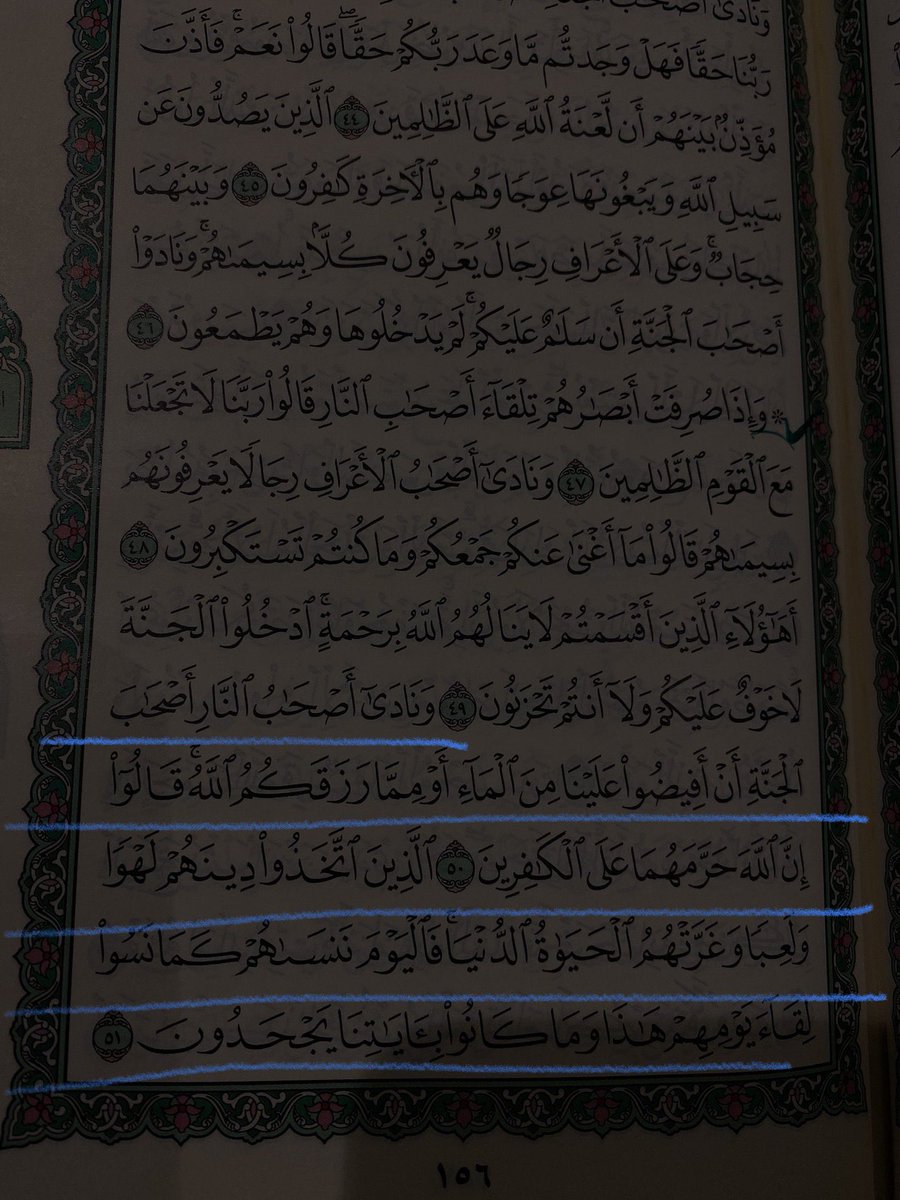 وَنَادَىٰٓ أَصْحَٰبُ
رَبُّنَا حَقًّا فَهَلْ وَجَدتُّم مَّا وَعَدَ رَبُّكُمْ حَقًّا ۖ قَالُوا۟ نَعَمْ ۚ فَأَذَّنَ
مُؤَذِّنٌۢ بَيْنَهُمْ أَن لَّعْنَةُ ٱللَّهِ عَلَى ٱلظَّٰلِمِينَ ٤٤ ٱلَّذِينَ يَصُدُّونَ عَن
سَبِيلِ ٱللَّهِ وَيَبْغُونَهَا عِوَجًا وَهُم بِٱلْءَاخِرَةِ كَٰفِرُونَ ٤٥ وَبَيْنَهُمَا
حِجَابٌ ۚ وَعَلَى ٱلْأَعْرَافِ رِجَالٌ يَعْرِفُونَ كُلًّۢا بِسِيمَىٰهُمْ ۚ وَنَادَوْا۟
أَصْحَٰبَ ٱلْجَنَّةِ أَن سَلَٰمٌ عَلَيْكُمْ ۚ لَمْ يَدْخُلُوهَا وَهُمْ يَطْمَعُونَ ٤٦
* وَإِذَا صُرِفَتْ أَبْصَٰرُهُمْ تِلْقَآءَ أَصْحَٰبِ ٱلنَّارِ قَالُوا۟ رَبَّنَا لَا تَجْعَلْنَا
مَعَ ٱلْقَوْمِ ٱلظَّٰلِمِينَ ٤٧ وَنَادَىٰٓ أَصْحَٰبُ ٱلْأَعْرَافِ رِجَالًا يَعْرِفُونَهُم
بِسِيمَىٰهُمْ قَالُوا۟ مَآ أَغْنَىٰ عَنكُمْ جَمْعُكُمْ وَمَا كُنتُمْ تَسْتَكْبِرُونَ ٤٨
أَهَٰٓؤُلَآءِ ٱلَّذِينَ أَقْسَمْتُمْ لَا يَنَالُهُمُ ٱللَّهُ بِرَحْمَةٍ ۚ ٱدْخُلُوا۟ ٱلْجَنَّةَ
لَا خَوْفٌ عَلَيْكُمْ وَلَآ أَنتُمْ تَحْزَنُونَ ٤٩ وَنَادَىٰٓ أَصْحَٰبُ ٱلنَّارِ أَصْحَٰبَ
ٱلْجَنَّةِ أَنْ أَفِيضُوا۟ عَلَيْنَا مِنَ ٱلْمَآءِ أَوْ مِمَّا رَزَقَكُمُ ٱللَّهُ ۚ قَالُوٓا۟
إِنَّ ٱللَّهَ حَرَّمَهُمَا عَلَى ٱلْكَٰفِرِينَ ٥٠ ٱلَّذِينَ ٱتَّخَذُوا۟ دِينَهُمْ لَهْوًا
وَلَعِبًا وَغَرَّتْهُمُ ٱلْحَيَوٰةُ ٱلدُّنْيَا ۚ فَٱلْيَوْمَ نَنسَىٰهُمْ كَمَا نَسُوا۟
لِقَآءَ يَوْمِهِمْ هَٰذَا وَمَا كَانُوا۟ بِـَٔايَٰتِنَا يَجْحَدُونَ ٥١
١٥٦